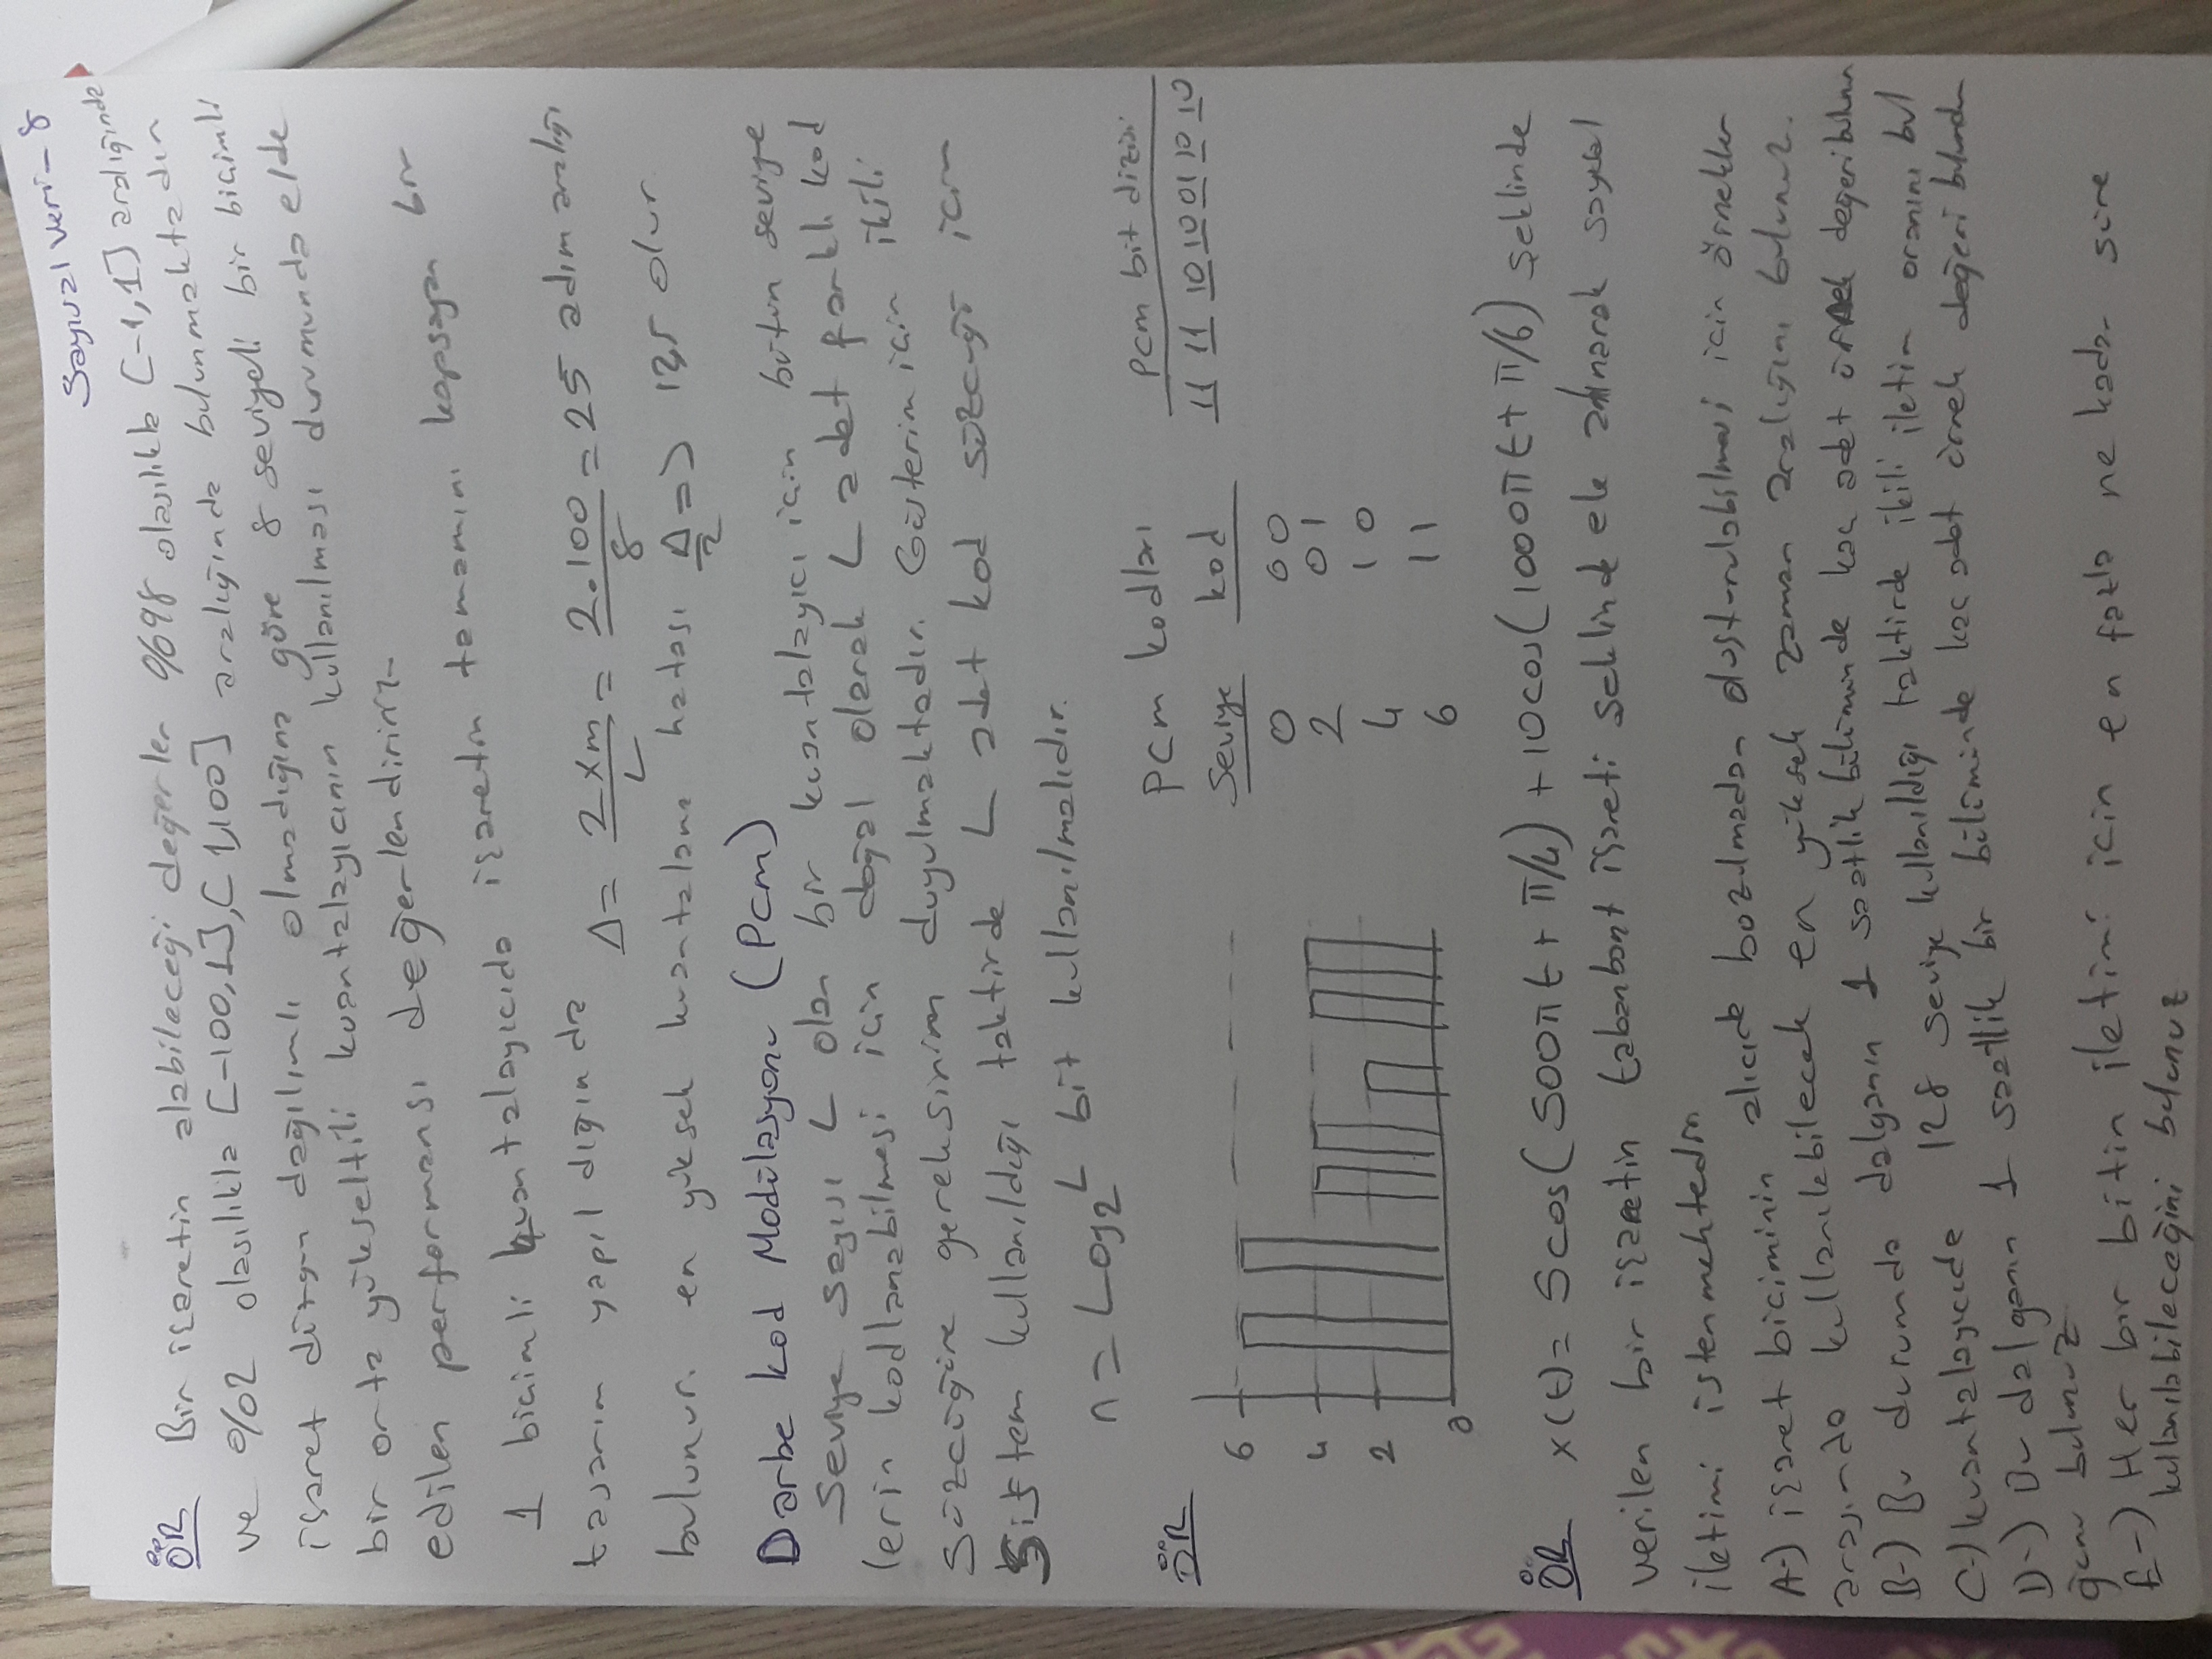 Sayısal Veri - 8
ÖR Bir işaretin alabileceği değerler %98 olasılıkla [-1,1] aralığında
ve %02 olasılıkla [-100,1], [1,100] aralığında bulunmaktadır
işaret düzgün dağılımlı olmadığına göre 8 seviyeli bir biçimli
bir orta yükseltili kuantalayıcının kullanılması durumunda elde
edilen performansı değerlendiriniz
1 biçimli kuantalayıcıda işaretin tamamını kapsayan bir
tasarım yapıldığında Δ = 2xm/L = 2.100/8 = 25 adım aralığı
bulunur. en yüksek kuantalama hatası Δ/2 => 12,5 olur
Darbe kod Modülasyonu (Pcm)
Seviye sayısı L olan bir kuantalayıcı için bütün seviye
lerin kodlanabilmesi için doğal olarak L adet farklı kod
sözcüğüne gereksinim duyulmaktadır. Gösterim için ikili
sistem kullanıldığı taktirde L adet kod sözcüğü için
n = Log2^L bit kullanılmalıdır.
ÖR
6
4
2
0
PCM kodları
Seviye kod
0 00
2 01
4 10
6 11
PCM bit dizisi
11 11 10 10 01 10 10
ÖR x(t) = 5cos(500πt + π/4) + 10cos(1000πt + π/6) şeklinde
verilen bir işaretin tabanbant işareti şeklinde ele alınarak sayısal
iletimi istenmektedir
A-) işaret biçiminin alıcıda bozulmadan oluşturulabilmesi için örnekler
arasında kullanılabilecek en yüksek zaman aralığını bulunuz.
B-) Bu durumda dalganın 1 saatlik bölümünde kaç adet örnek değeri bulunur
C-) kuantalayıcıda 128 seviye kullanıldığı taktirde ikili iletim oranını bul
D-) Bu dalganın 1 saatlik bir bölümünde kaç adet örnek değeri bulundu
ğunu bulunuz
E-) Her bir bitin iletimi için en fazla ne kadar süre
kullanılabileceğini bulunuz